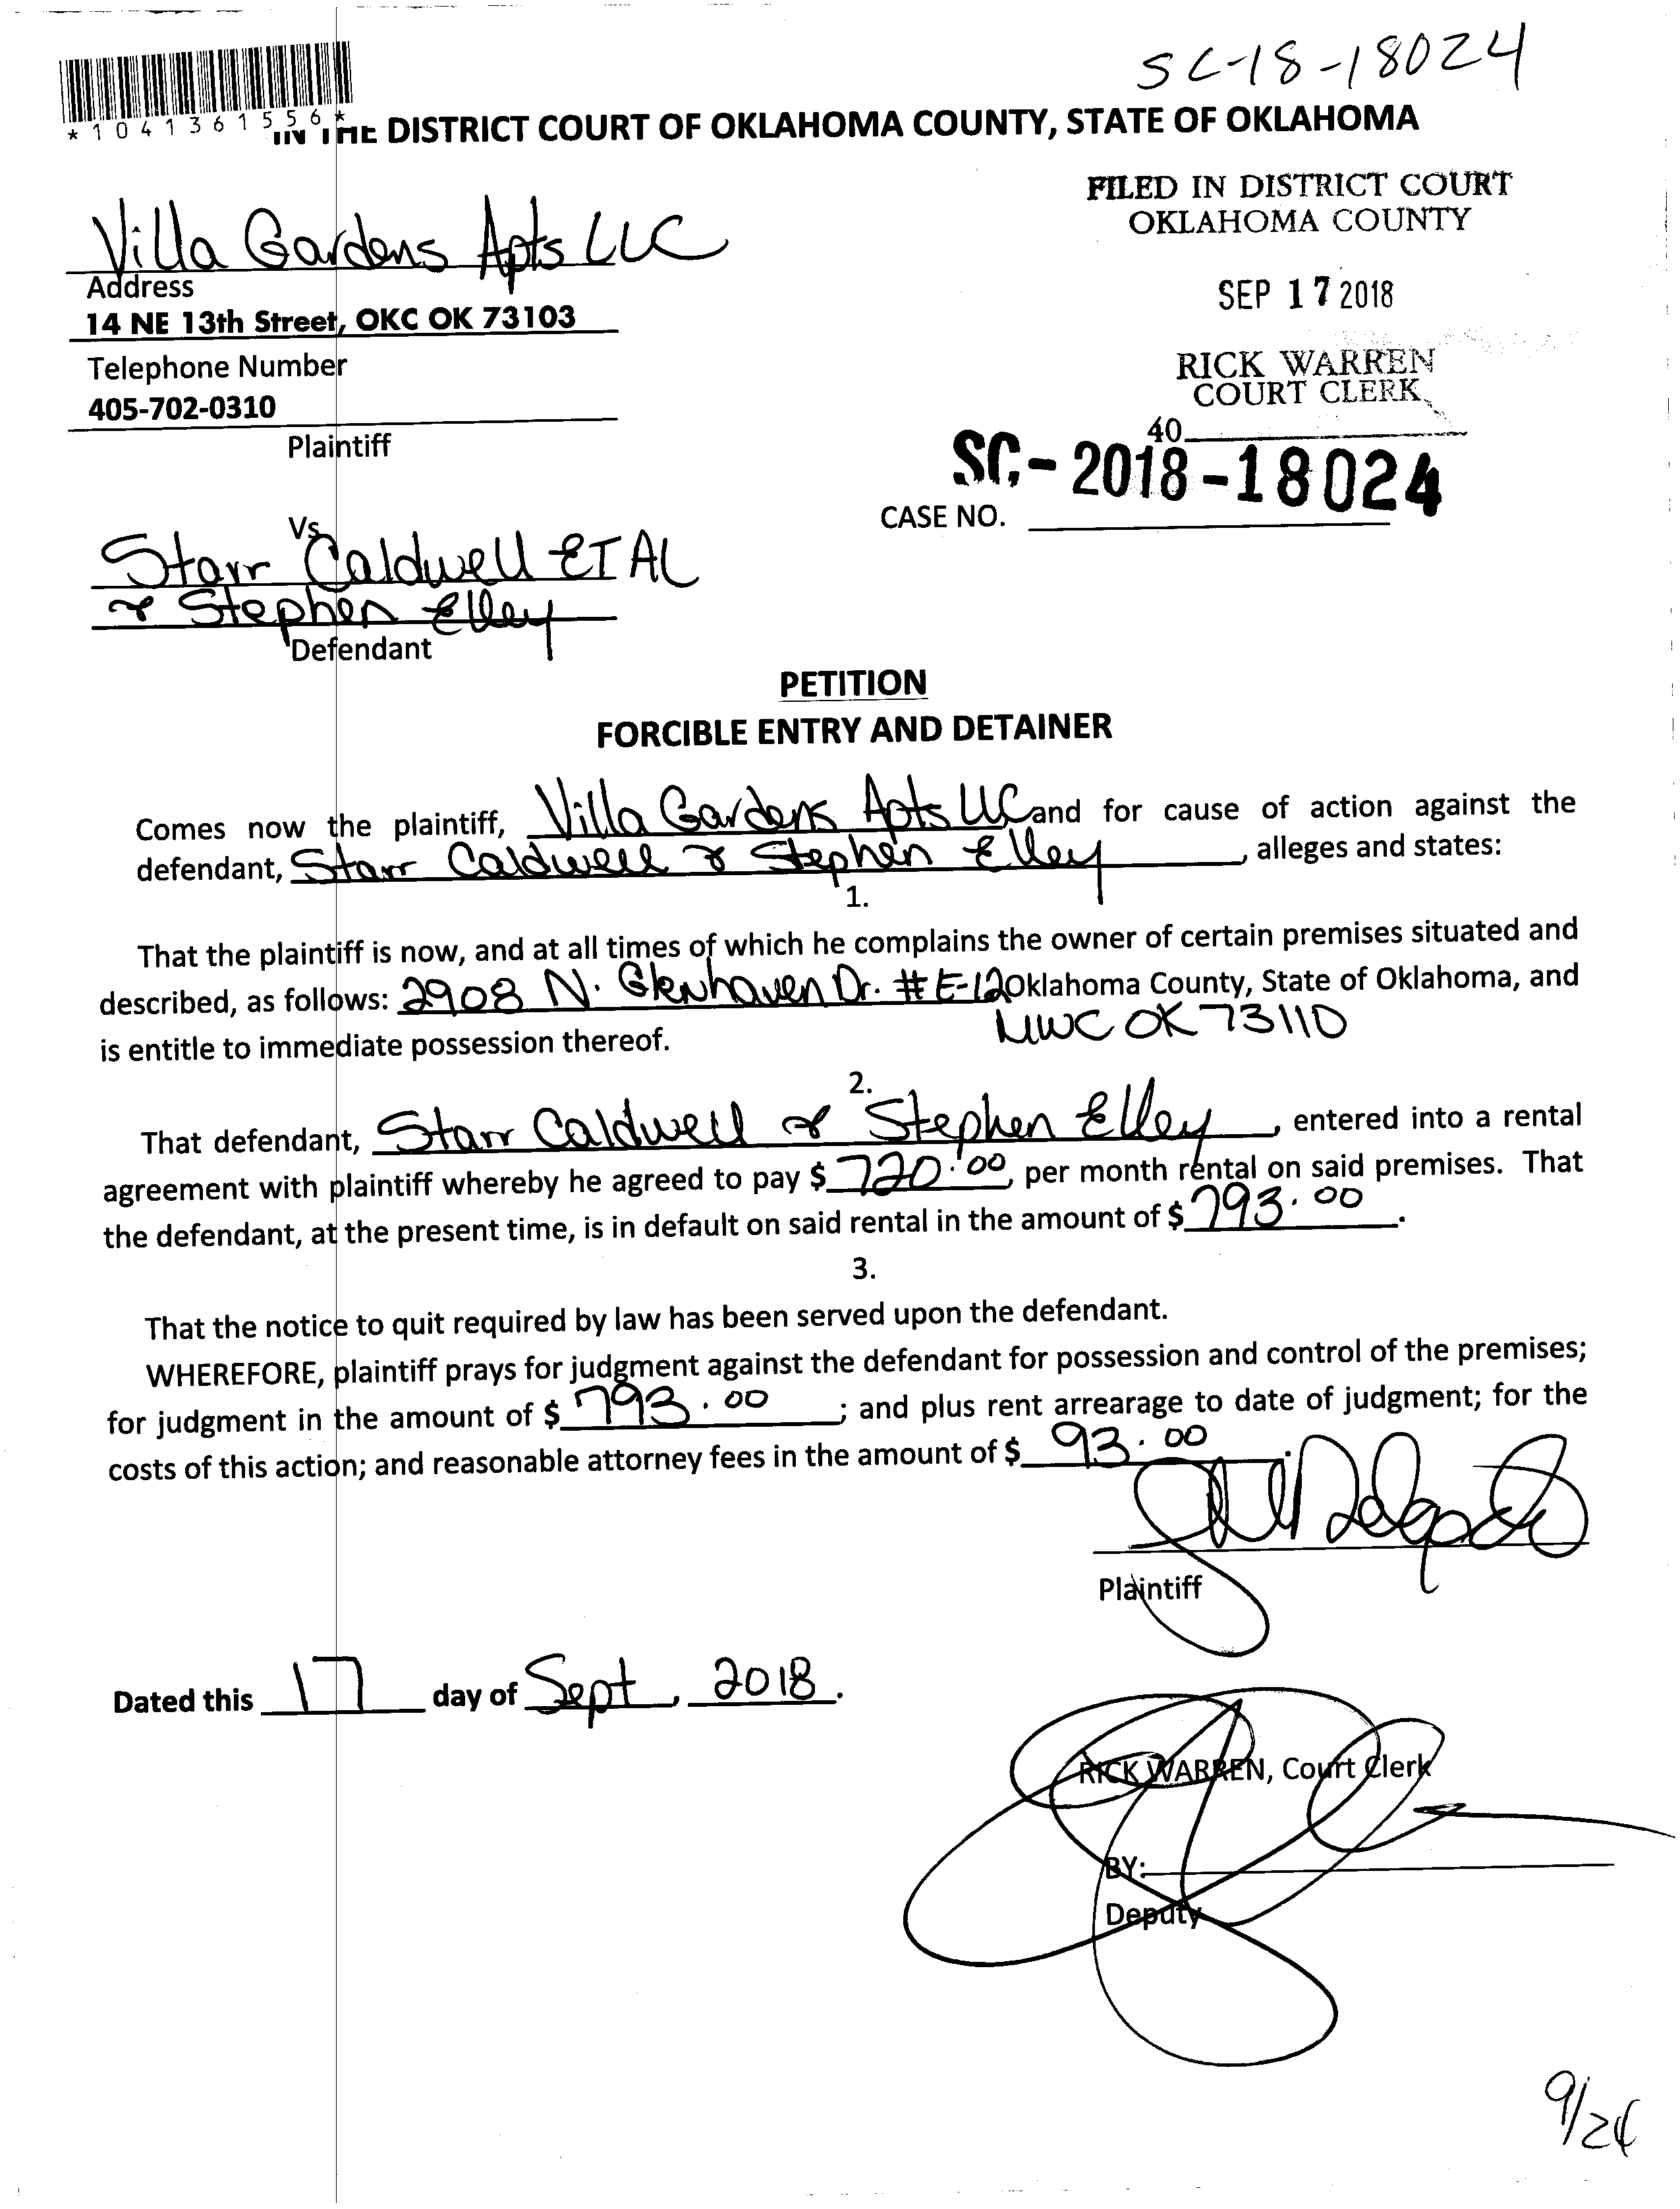 SC-18-18024
*1041361556*
IN THE DISTRICT COURT OF OKLAHOMA COUNTY, STATE OF OKLAHOMA
FILED IN DISTRICT COURT
OKLAHOMA COUNTY
SEP 17 2018
RICK WARREN
COURT CLERK
40
Villa Gardens Apts LLC
Address
14 NE 13th Street, OKC OK 73103
Telephone Number
405-702-0310
Plaintiff
SC-2018-18024
CASE NO.
Vs
Starr Caldwell ET AL
& Stephen Elley
Defendant
PETITION
FORCIBLE ENTRY AND DETAINER
Comes now the plaintiff, Villa Gardens Apts LLC and for cause of action against the
defendant, Starr Caldwell & Stephen Elley, alleges and states:
1.
That the plaintiff is now, and at all times of which he complains the owner of certain premises situated and
described, as follows: 2908 N. Glenhaven Dr. #E-12 Oklahoma County, State of Oklahoma, and
MWC OK 73110
is entitle to immediate possession thereof.
2.
That defendant, Starr Caldwell & Stephen Elley, entered into a rental
agreement with plaintiff whereby he agreed to pay $ 720.00, per month rental on said premises. That
the defendant, at the present time, is in default on said rental in the amount of $ 793.00.
3.
That the notice to quit required by law has been served upon the defendant.
WHEREFORE, plaintiff prays for judgment against the defendant for possession and control of the premises;
for judgment in the amount of $ 793.00; and plus rent arrearage to date of judgment; for the
costs of this action; and reasonable attorney fees in the amount of $ 93.00
Plaintiff
Dated this 17 day of Sept, 2018.
RICK WARREN, Court Clerk
BY:
Deputy